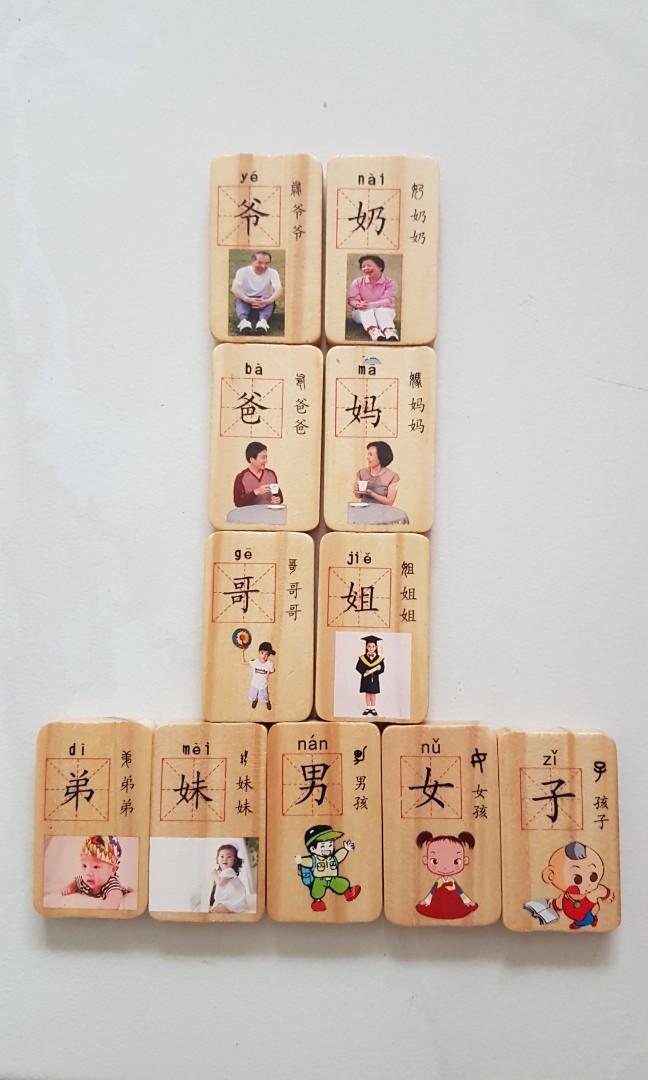 yé
爷
爷
爷
nài
奶
奶
奶
bà
爸
爸
爸
mā
妈
妈
妈
gē
哥
哥
哥
jiě
姐
姐
姐
dì
弟
弟
弟
mèi
妹
妹
妹
nán
男
男
孩
nǚ
女
女
孩
zǐ
子
孩
子